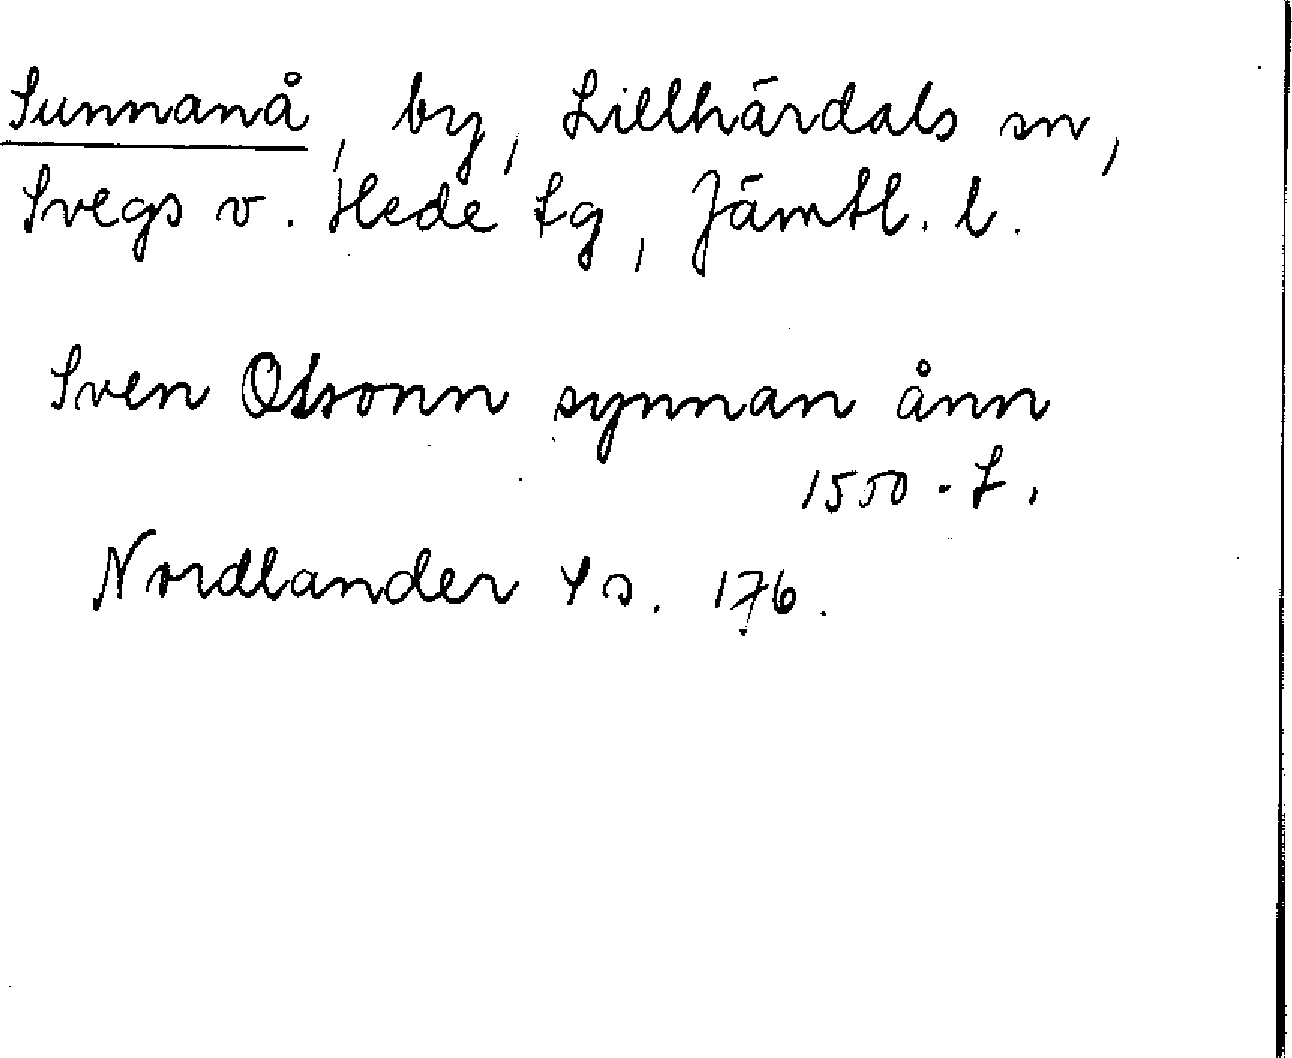 Sunnanå, by, Lillhärdals sn,
Svegs o. Hede tg, Jämtl. l.
Sven Olsonn synnan ånn
1550.
Nordlander s. 176.